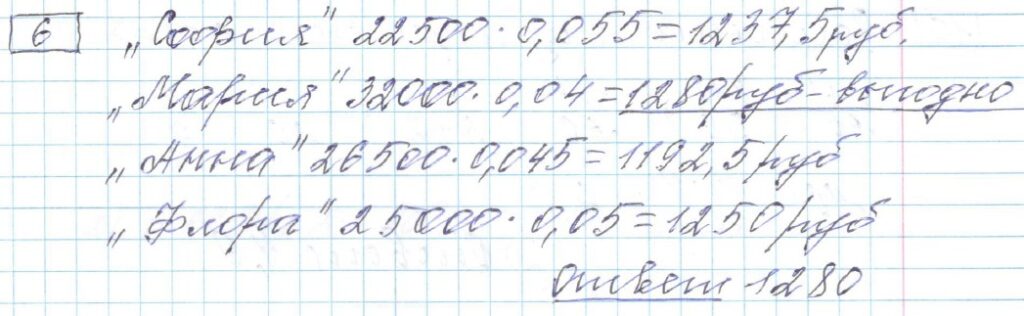 6 „София" 22500 · 0,055 = 1237,5 руб.
„Мария" 32000 · 0,04 = 1280 руб - выгодно
„Анна" 26500 · 0,045 = 1192,5 руб
„Флора" 25000 · 0,05 = 1250 руб
ответ 1280